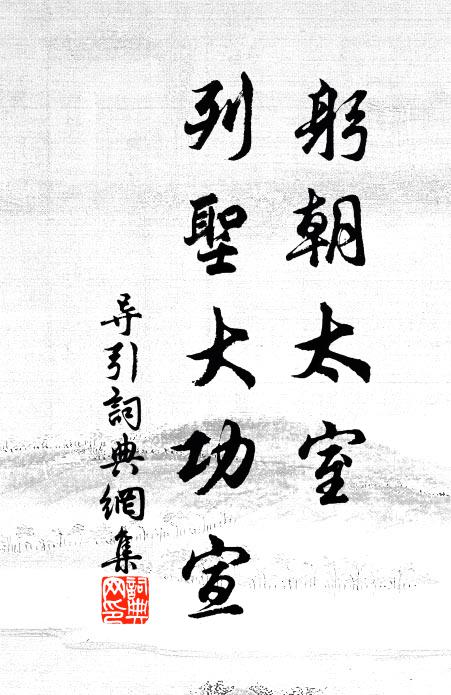 躬朝太室
列聖大功宣
导引詞典網集
詞典
网印